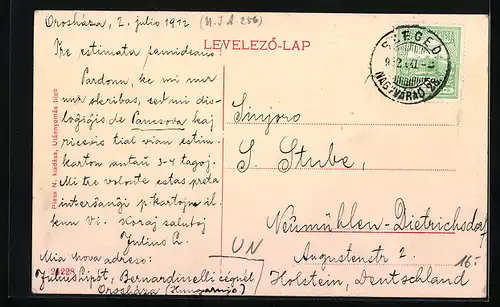 Orosháza, 2. julio 1912
(U.J.A. 286)
Tre estimata samideano!
LEVELEZŐ-LAP
SZEGED
NAGYVÁRAD
Pardonu, ke mi nur
nun skribas, sed mi dis-
loĝiĝis de Pancsova kaj
ricevis tial vian estim.
karton antaŭ 3-4 tagoj.
Mi tre volonte estas preta
interŝanĝi p. kartojn il.
kun Vi. Koraj salutoj
Julius L.
Sinjoro
S. Stube,
Neumühlen-Dietrichsdorf
Augustenstr 2.
Holstein, Deutschland
16.-
UN
Mia nova adreso:
Julius Lipót, Bernardinelli cégnél
Orosháza (Hungarujo)
21228
Pless N. kiadása, Utánnyomás tilos